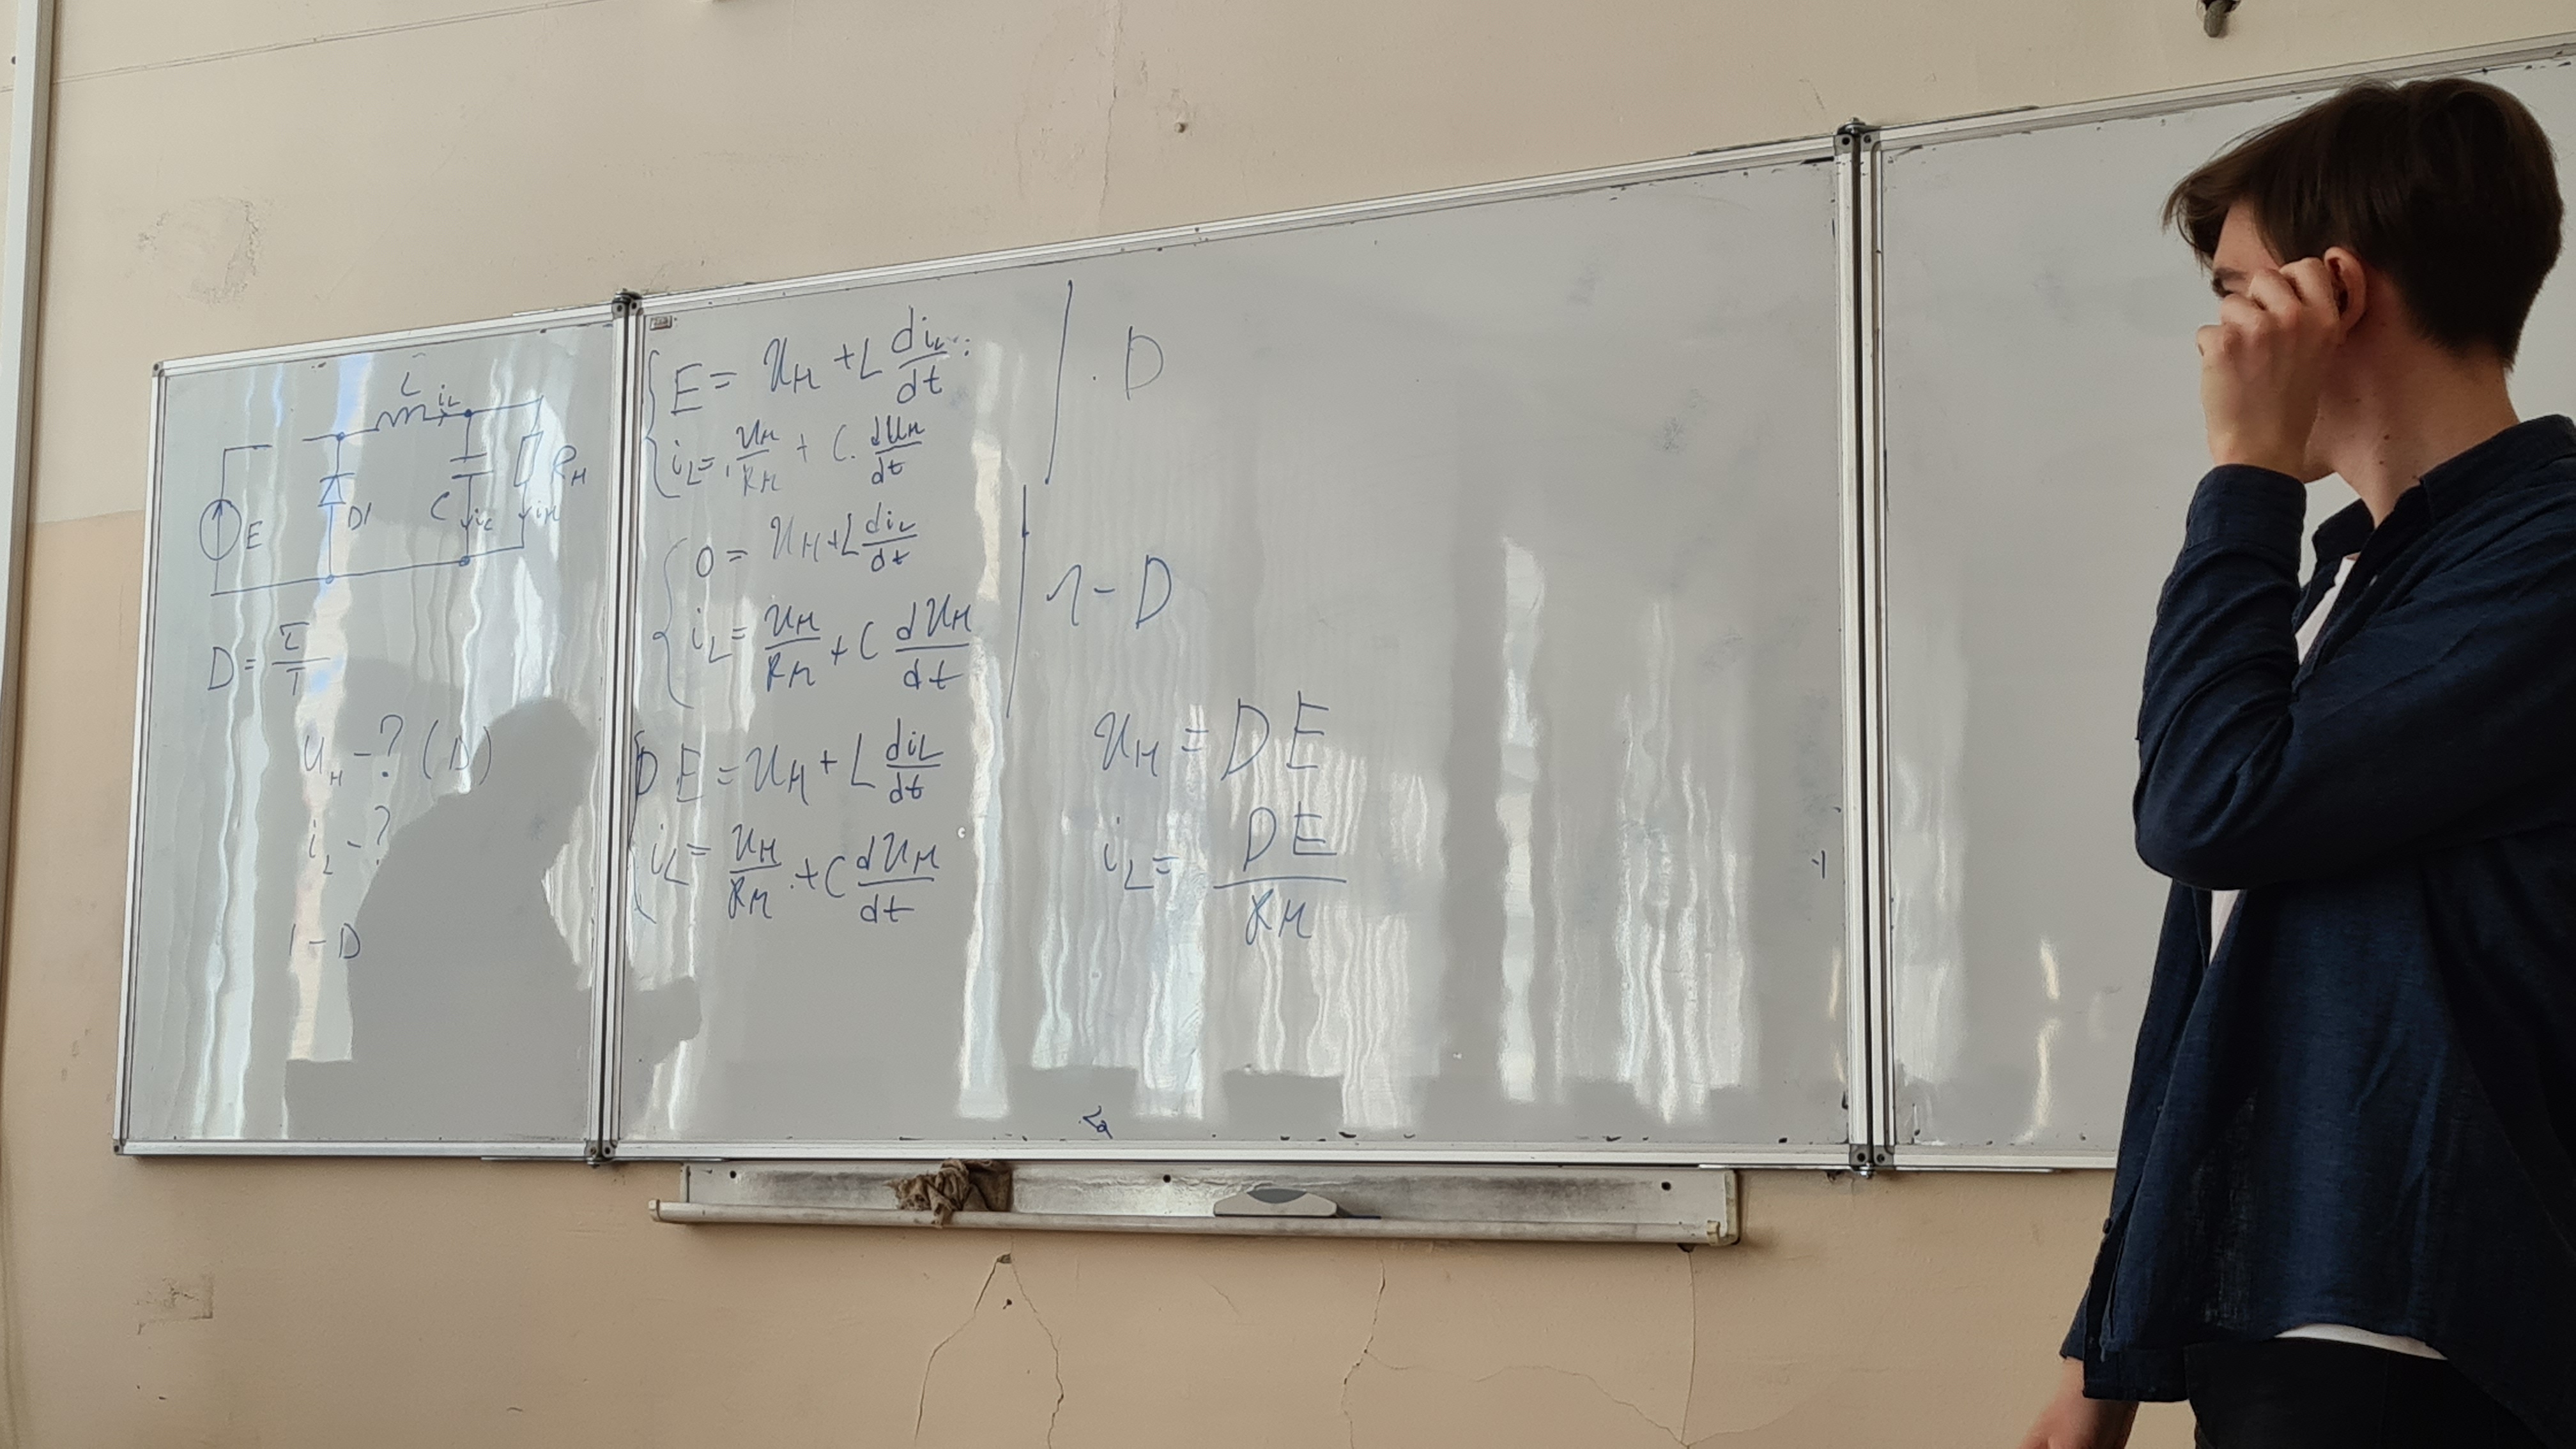 L i_L
E
D1
C i_c
i_н
R_н
D = τ/T
u_н - ? (D)
i_L - ?
1 - D
E = u_н + L di_L/dt
i_L = u_н/R_н + C · du_н/dt
· D
0 = u_н + L di_L/dt
i_L = u_н/R_н + C du_н/dt
1 - D
DE = u_н + L di_L/dt
i_L = u_н/R_н + C du_н/dt
u_н = DE
i_L = DE/R_н